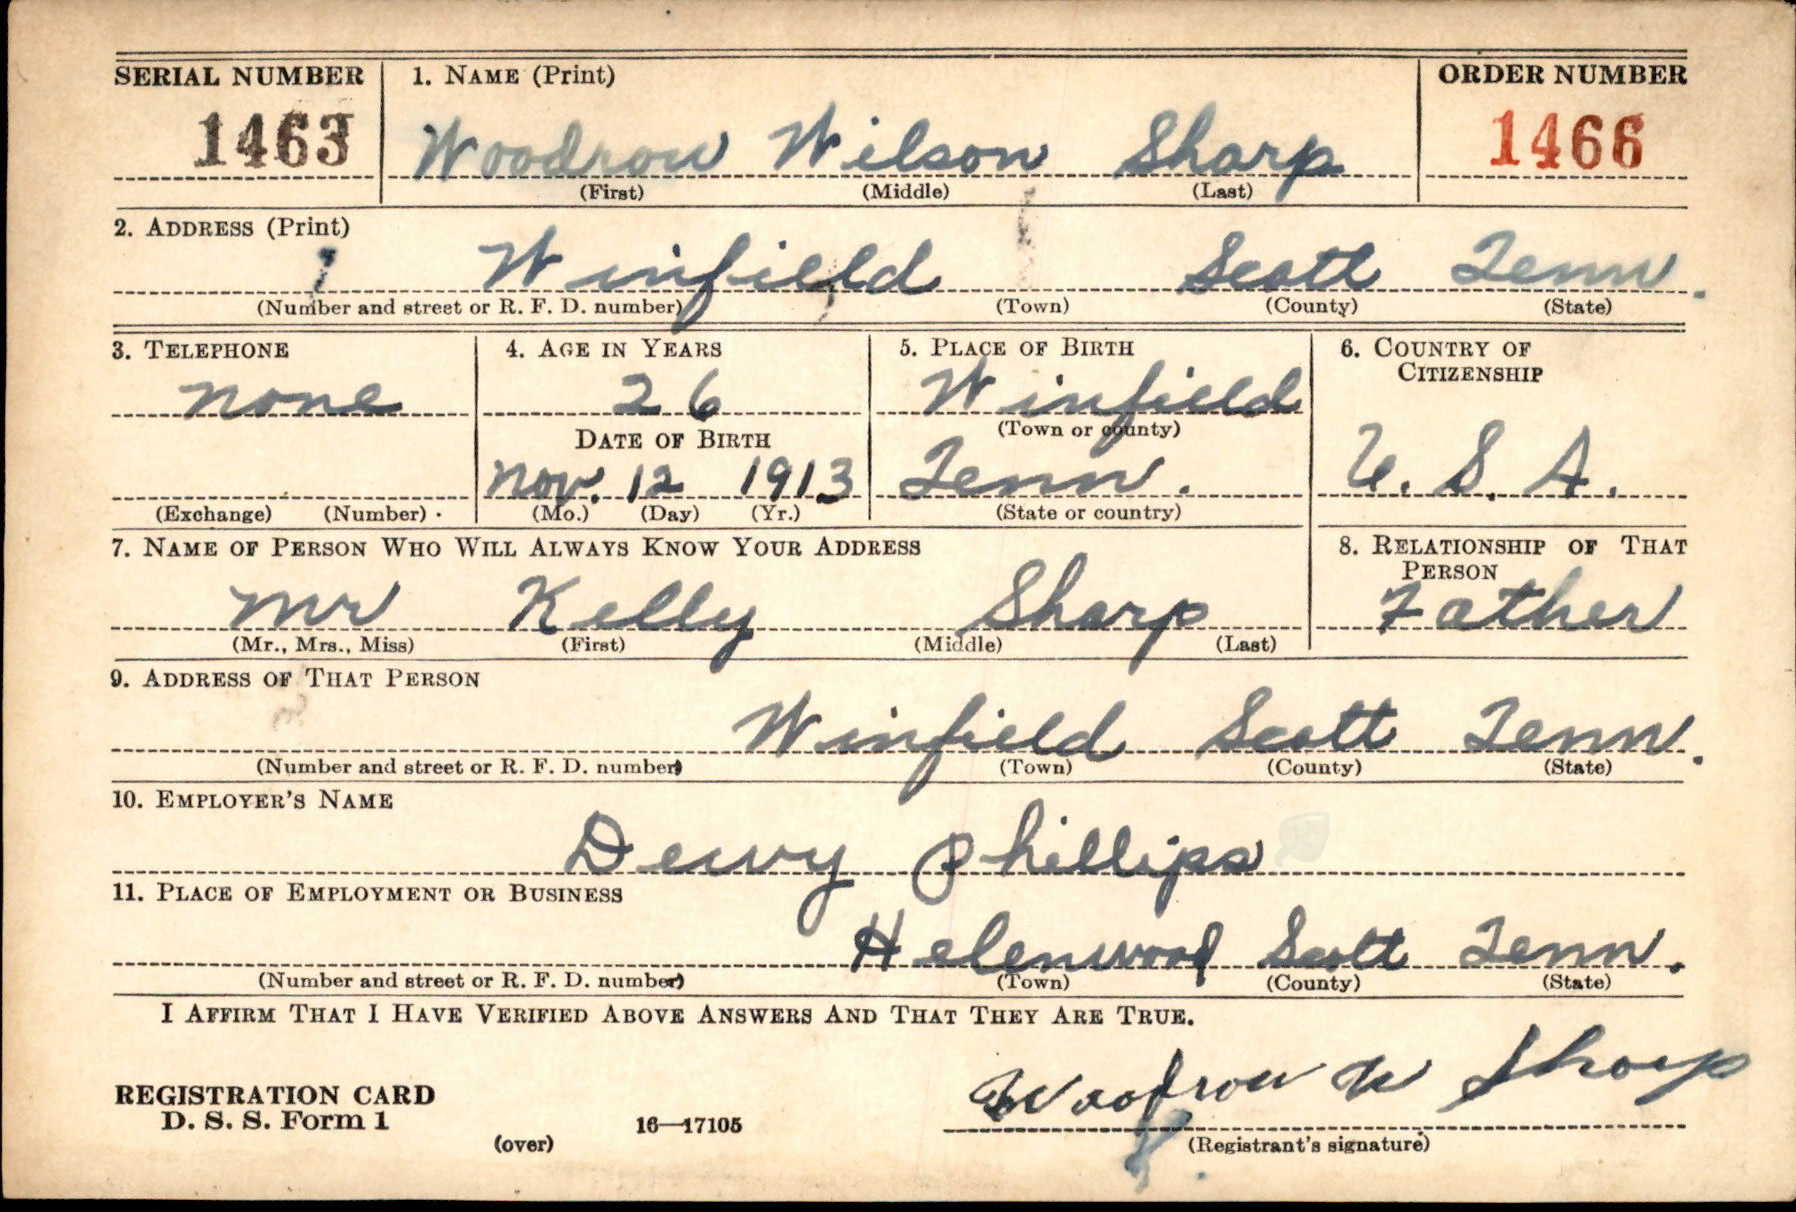 SERIAL NUMBER 1. NAME (Print) ORDER NUMBER
1463 Woodrow Wilson Sharp 1466
(First) (Middle) (Last)
2. ADDRESS (Print)
Winfield Scott Tenn.
(Number and street or R. F. D. number) (Town) (County) (State)
3. TELEPHONE 4. AGE IN YEARS 5. PLACE OF BIRTH 6. COUNTRY OF
CITIZENSHIP
none 26 Winfield
DATE OF BIRTH (Town or county)
Nov. 12 1913 Tenn. U. S. A.
(Exchange) (Number) (Mo.) (Day) (Yr.) (State or country)
7. NAME OF PERSON WHO WILL ALWAYS KNOW YOUR ADDRESS 8. RELATIONSHIP OF THAT
PERSON
Mr Kelly Sharp Father
(Mr., Mrs., Miss) (First) (Middle) (Last)
9. ADDRESS OF THAT PERSON
Winfield Scott Tenn.
(Number and street or R. F. D. number) (Town) (County) (State)
10. EMPLOYER'S NAME
Dewy Phillips
11. PLACE OF EMPLOYMENT OR BUSINESS
Helenwood Scott Tenn.
(Number and street or R. F. D. number) (Town) (County) (State)
I AFFIRM THAT I HAVE VERIFIED ABOVE ANSWERS AND THAT THEY ARE TRUE.
Woodrow W Sharp
REGISTRATION CARD
D. S. S. Form 1 16—17105
(over) (Registrant's signature)